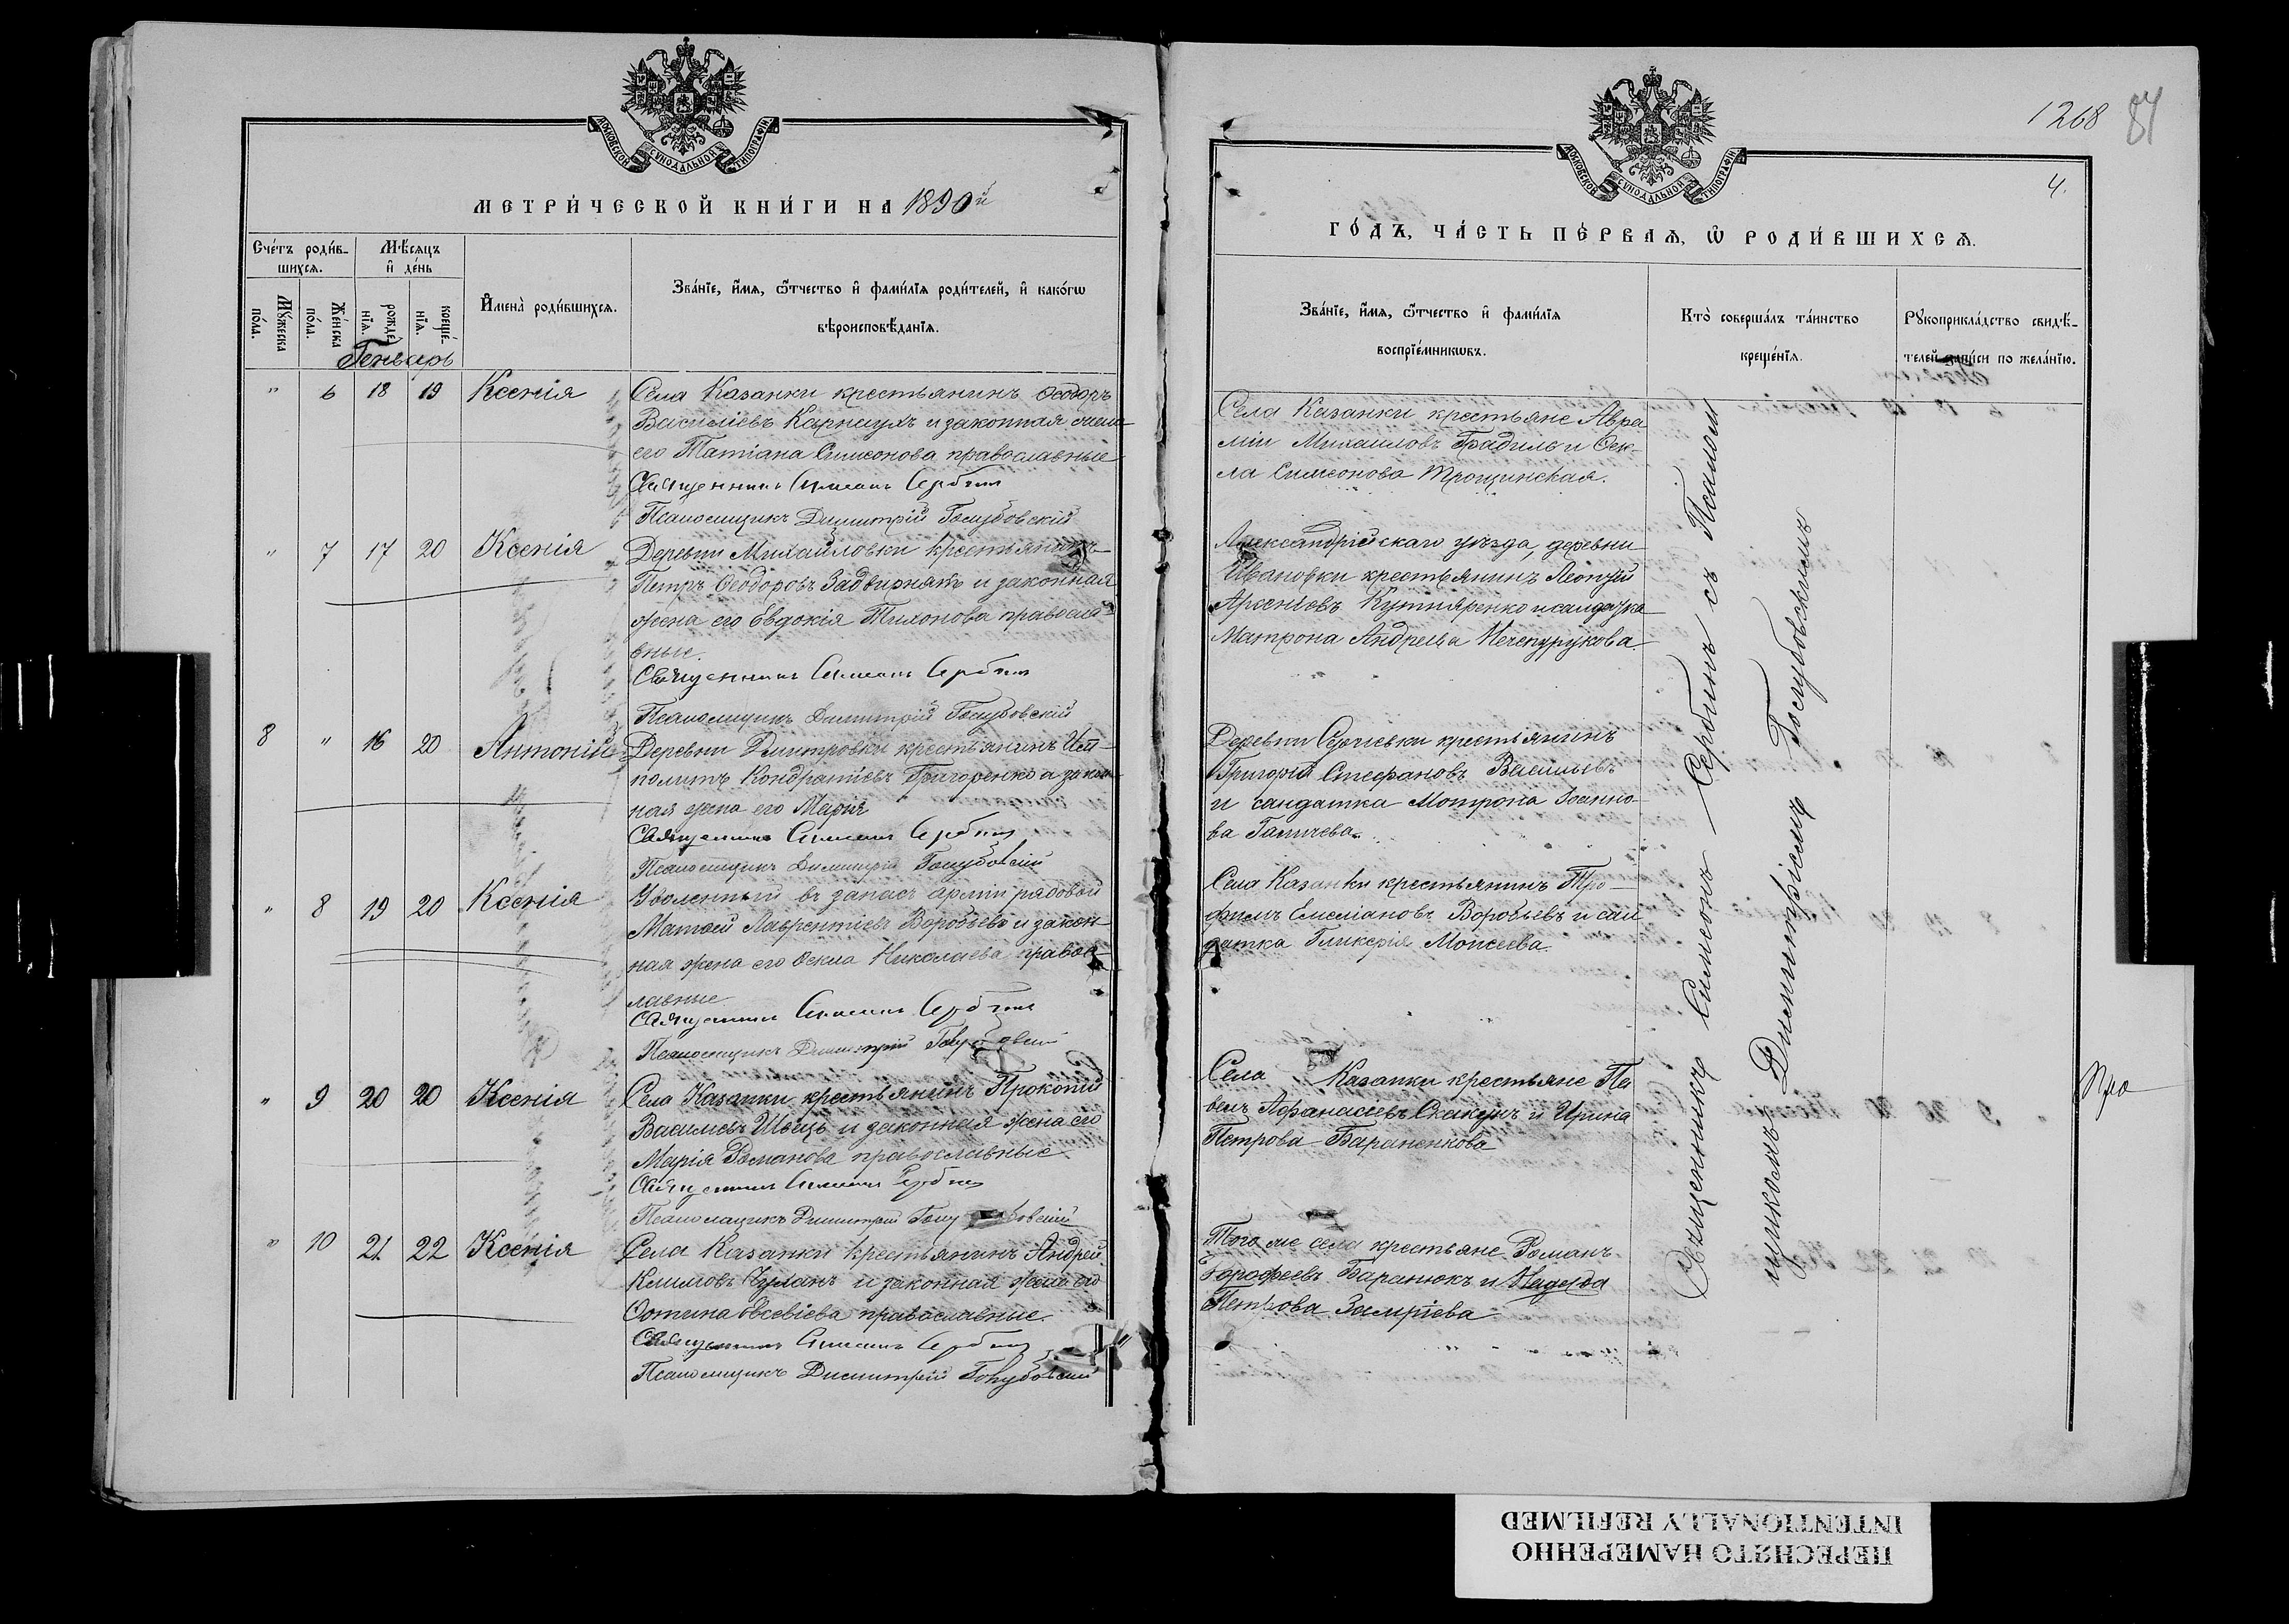 МОСКОВСКОЙ СУНОДАЛЬНОЙ ТИПОГРАФІИ
МЕТРИ́ЧЕСКОЙ КНИ́ГИ НА 1890й
Сче́тъ роди́в-
шихсѧ.
Мѣ́сѧцъ
и҆ де́нь
Мꙋ́жеска
по́ла.
Же́нска
по́ла.
рожде́-
нїѧ.
креще́-
нїѧ.
И҆мена̀ роди́вшихсѧ.
Зва́нїе, и҆́мѧ, ѻ҆́тчество и҆ фами́лїѧ роди́телей, и҆ како́гѡ
вѣроисповѣ́данїѧ.
Генварь
" 6 18 19 Ксенія
Села Казанки крестьянинъ Ѳеодоръ
Василіевъ Карнаухъ и законная жена
его Татіана Симеонова православные
Священникъ Симеонъ Сербинъ
Псаломщикъ Димитрій Голубовскій
" 7 17 20 Ксенія
Деревни Михайловки крестьянинъ
Петръ Ѳеодоровъ Задвирнякъ и законная
жена его Евдокія Тихонова правосла-
вные.
Священникъ Симеонъ Сербинъ
Псаломщикъ Димитрій Голубовскій
8 " 16 20 Антоній
Деревни Дмитровки крестьянинъ Ип-
политъ Кондратіевъ Григоренко и закон-
ная жена его Марія
Священникъ Симеонъ Сербинъ
Псаломщикъ Димитрій Голубовскій
" 8 19 20 Ксенія
Уволенный въ запасъ арміи рядовой
Матѳей Лаврентіевъ Воробьевъ и закон-
ная жена его Ѳекла Николаева правос-
лавные
Священникъ Симеонъ Сербинъ
Псаломщикъ Димитрій Голубовскій
" 9 20 20 Ксенія
Села Казанки крестьянинъ Прокопій
Василіевъ Швецъ и законная жена его
Марія Романова православные
Священникъ Симеонъ Сербинъ
Псаломщикъ Димитрій Голубовскій
" 10 21 22 Ксенія
Села Казанки крестьянинъ Андрей
Климовъ Чуланъ и законная жена его
Фотина Евсевіева православные.
Священникъ Симеонъ Сербинъ
Псаломщикъ Димитрій Голубовскій
1268 84
МОСКОВСКОЙ СУНОДАЛЬНОЙ ТИПОГРАФІИ
4.
ГО́ДЪ, ЧА́СТЬ ПЕ́РВАѦ, Ѡ҆ РОДИ́ВШИХСѦ.
Зва́нїе, и҆́мѧ, ѻ҆́тчество и҆ фами́лїѧ
воспрїе́мникѡвъ.
Кто̀ соверша́лъ та́инство
креще́нїѧ.
Рꙋкоприкла́дство свидѣ́-
телей за́писи по жела́нїю.
Села Казанки крестьяне Авра-
мій Михаиловъ Градиль и Ѳек-
ла Симеонова Трощинская.
Александрійскаго уѣзда, деревни
Ивановки крестьянинъ Леонтій
Арсеніевъ Кутняренко и солдатка
Матрона Андреева Нечепурукова
Деревни Сергіевки крестьянинъ
Григорій Стефановъ Васильевъ
и солдатка Мотрона Іоанно-
ва Галичева.
Села Казанки крестьянинъ Тро-
фимъ Емеліановъ Воробьевъ и сол-
датка Гликерія Моисеева
Села Казанки крестьяне Па-
велъ Афанасіевъ Скакунъ и Ирина
Петрова Бараненкова
Того же села крестьяне Романъ
Дорофеевъ Баранюкъ и Надежда
Петрова Замріева
Священникъ Симеонъ Сербинъ съ Псалом-
щикомъ Димитріемъ Голубовскимъ
Про
ПЕРЕСНЯТО НАМЕРЕННО
INTENTIONALLY REFILMED